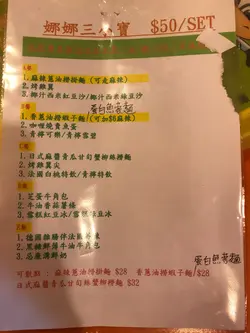 娜娜三 寶 $50/SET
A餐
1. 麻辣蔥油撈捞麵(可走麻辣)
2. 烤雞翼
3. 椰汁西米紅豆沙/椰汁西米綠豆沙
蛋白魚麵
B餐
1. 香蔥油撈蝦子麵/(可加$6麻辣)
2. 咖喱燒賣魚蛋
3. 青檸可樂/青檸雪碧
C餐
1. 日式麻醬青瓜甘旬蟹柳絲撈麵
2. 烤雞翼尖
3. 法國白桃特飲/青檸特飲
D餐
1. 芝蛋牛角包
2. 牛油香蒜薯條
3. 雪糕紅豆冰/雪糕涼豆冰
E餐
1. 德國雜腸伴法
2. 黑糖鮮 牛油牛角包
3. 忌廉溝鮮奶
蛋白魚麵
可散點: 麻辣蔥油撈麵 $28 香蔥油撈蝦子麵/$28
日式麻醬青瓜甘旬絲蟹柳撈麵 $32